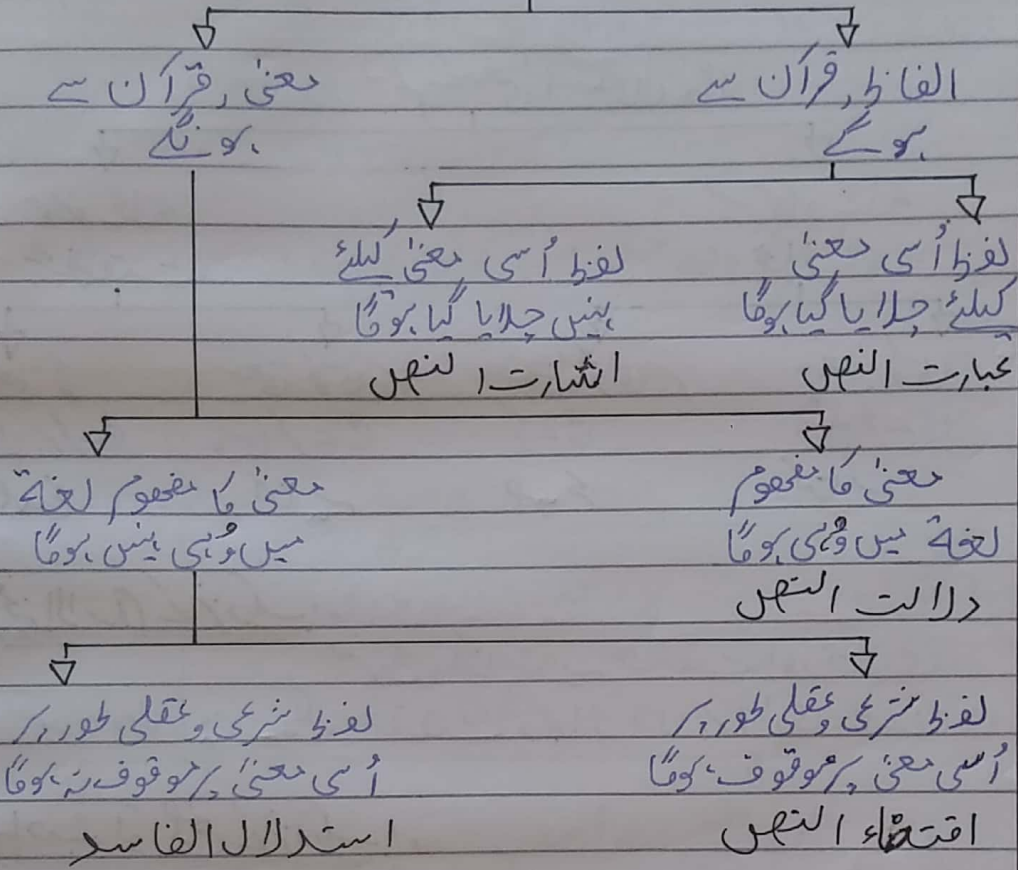 الفاظ، قرآن سے
ہو گے
معنیٰ، قرآن سے
ہونگے
لفظ اُسی معنیٰ
کیلئے چلایا گیا ہوگا
عبارت النص
لفظ اُسی معنیٰ کیلئے
نہیں چلایا گیا ہوگا
اشارت النص
معنیٰ کا مفہوم
لغۃ میں وُہی ہوگا
دلالت النص
معنیٰ کا مفہوم لغۃ
میں وُہی نہیں ہوگا
لفظ شرعی و عقلی طور پر
اُسی معنیٰ پر موقوف ہوگا
اقتضاء النص
لفظ شرعی و عقلی طور پر
اُسی معنیٰ پر موقوف نہ ہوگا
استدلال الفاسد